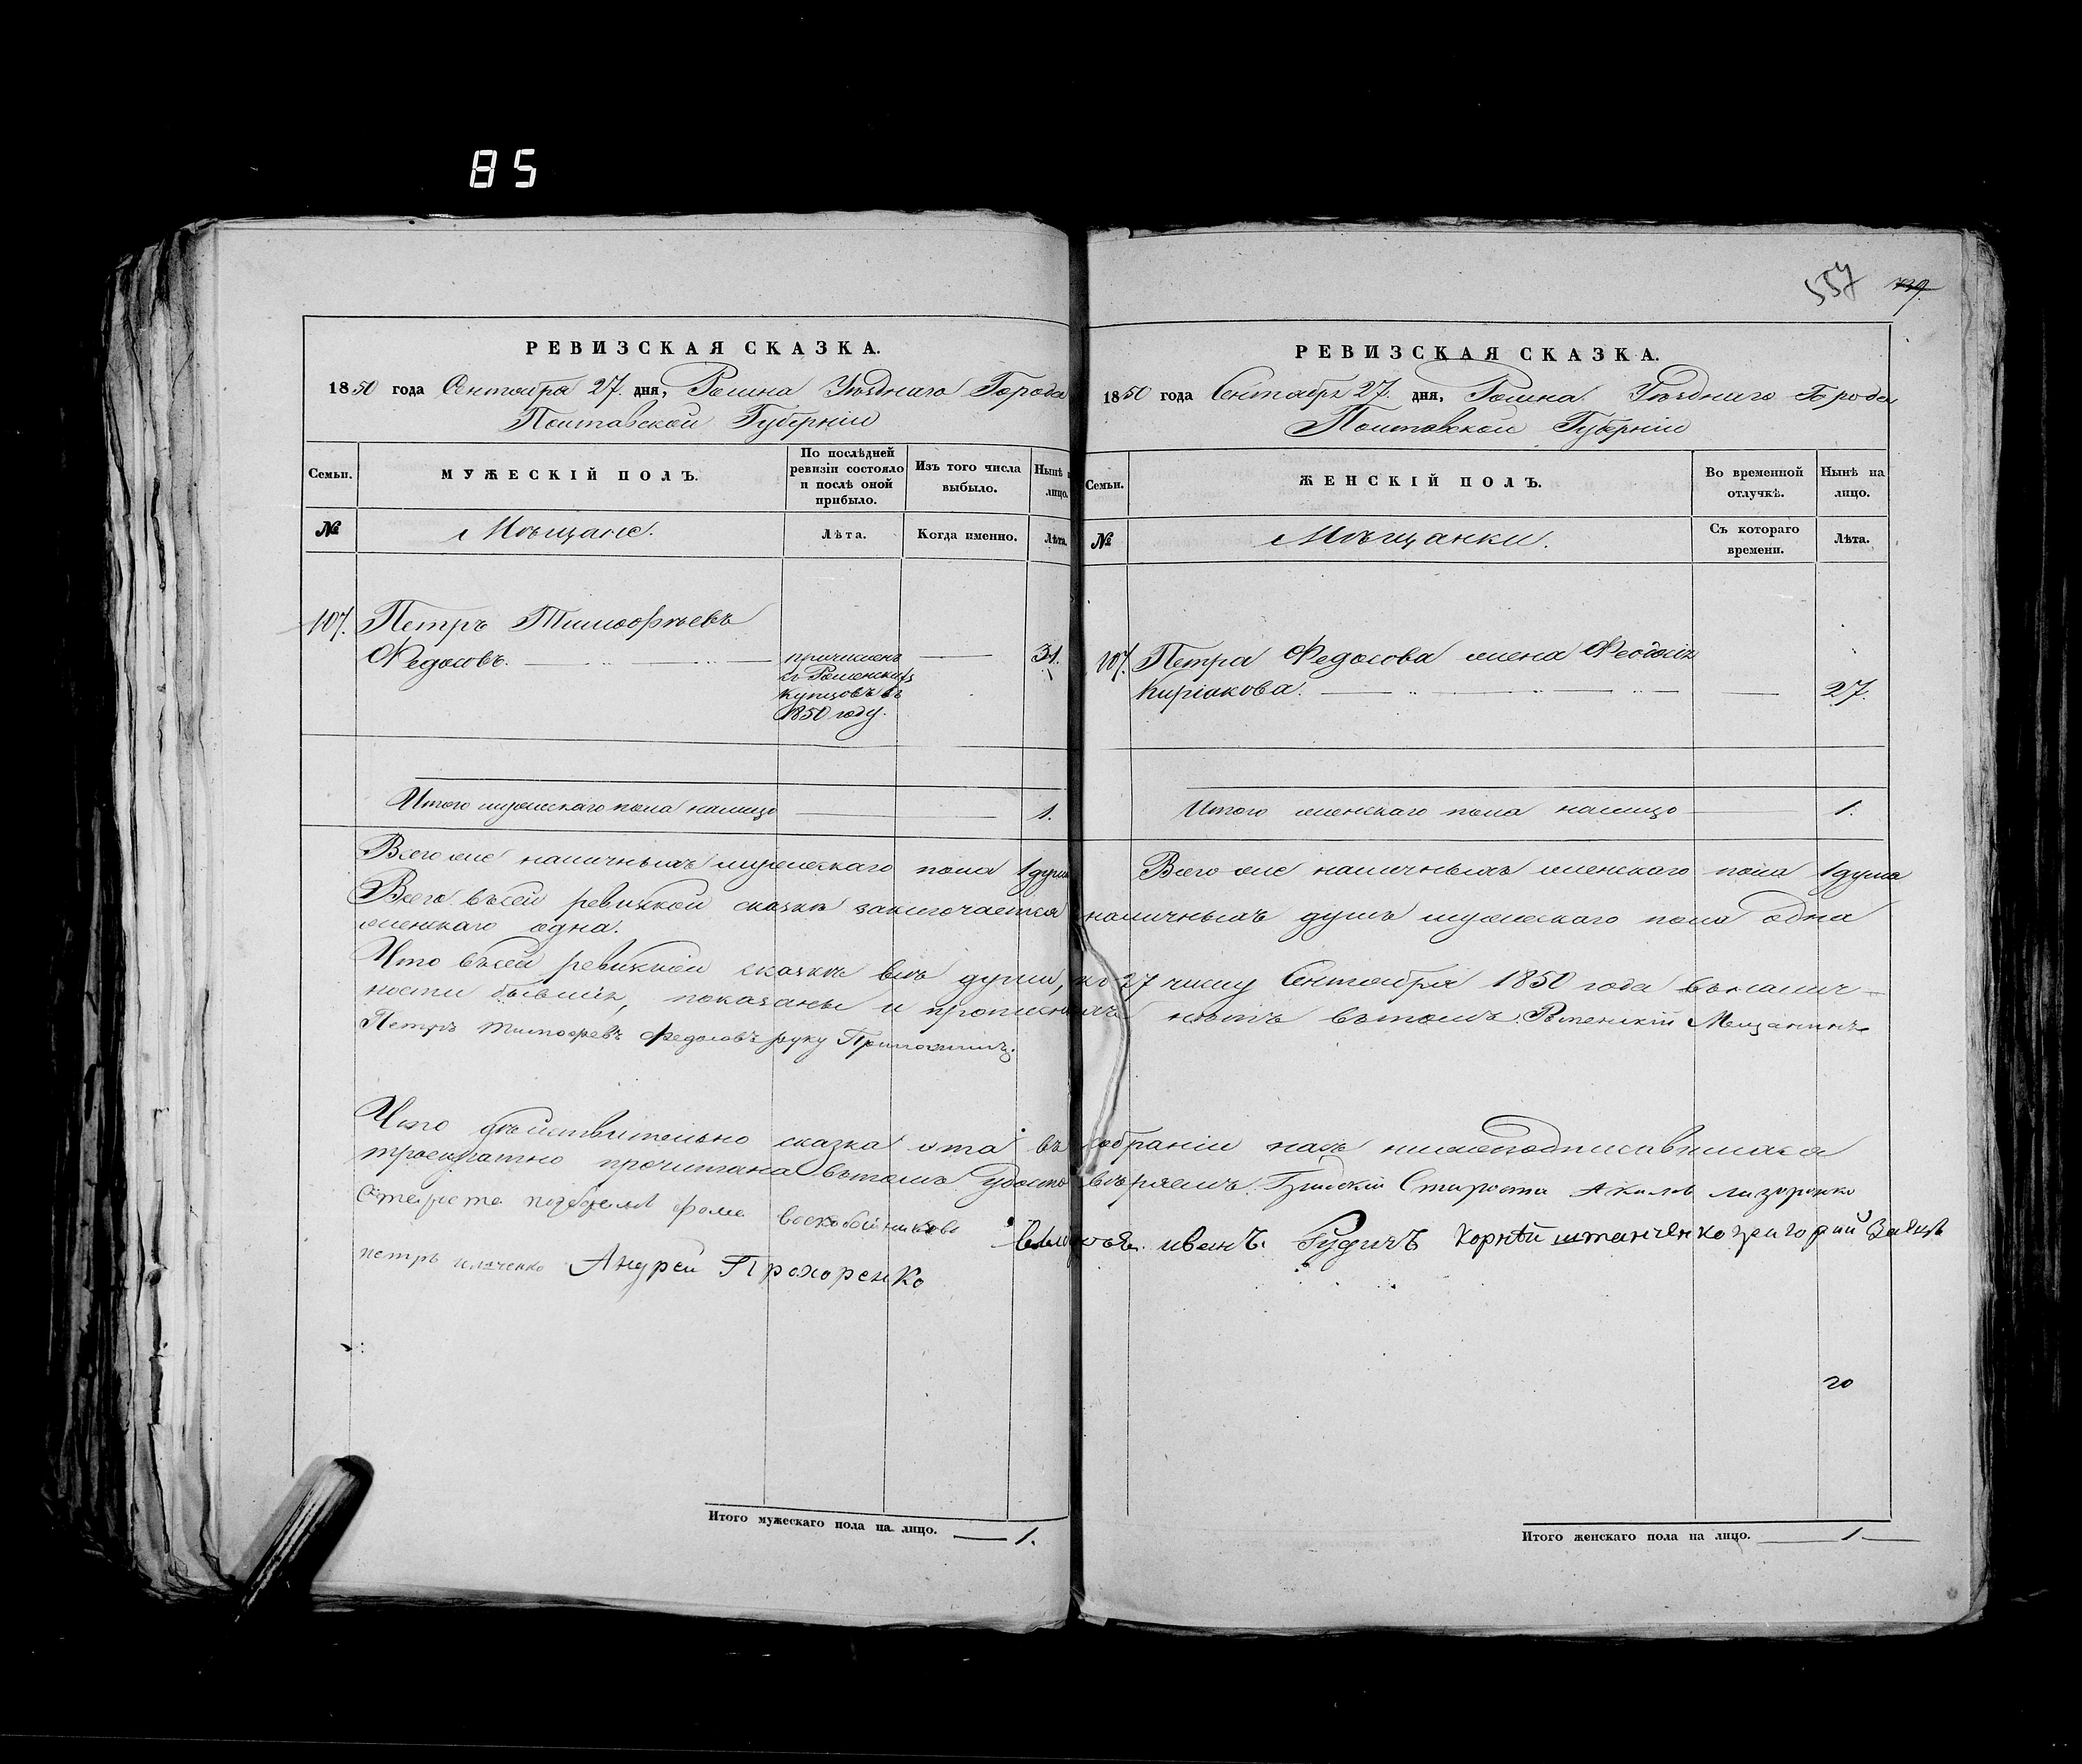 85
557 739.
РЕВИЗСКАЯ СКАЗКА.
1850 года Сентября 27. дня, Ромна Уѣзднаго Города
Полтавской Губерніи
Семьи.
МУЖЕСКІЙ ПОЛЪ.
По послѣдней ревизіи состояло и послѣ оной прибыло.
Изъ того числа выбыло.
Нынѣ на лицо.
№
Мѣщане.
Лѣта.
Когда именно.
Лѣта.
107. Петръ Тимофѣевъ
Федосовъ. 31.
причисленъ
изъ Роменскихъ
купцовъ въ
1850 году.
Итого мужескаго пола налицо 1.
Всего же наличныхъ мужескаго пола 1 душа
РЕВИЗСКАЯ СКАЗКА.
1850 года Сентября 27. дня, Ромна Уѣзднаго Города
Полтавской Губерніи
Семьи.
ЖЕНСКІЙ ПОЛЪ.
Во временной отлучкѣ.
Нынѣ на лицо.
№
Мѣщанки.
Съ котораго времени.
Лѣта.
107. Петра Федосова жена Феодосія
Киріакова. 27.
Итого женскаго пола налицо 1.
Всего же наличныхъ женскаго пола 1 душа
Всего въ сей ревизской сказкѣ заключается наличныхъ душъ мужескаго пола одна
женскаго одна.
Что въ сей ревизской сказкѣ всѣ души, къ 27 числу Сентября 1850 года въ налич-
ности бывшія, показаны и прописныхъ нѣтъ въ томъ. Роменскій Мещанинъ
Петръ Тимофевъ Федосовъ руку Приложилъ.
Что дѣйствительно сказка эта въ собраніи насъ нижеподписавшихся
троекратно прочитана въ томъ удостовѣряемъ. Староста
Староста фома воскобойниковъ иванъ. Рудичъ Корнѣй штанченко григорий Заяцъ
петръ Андрей Прохоренко
20
Итого мужескаго пола на лицо. 1.
Итого женскаго пола на лицо. 1